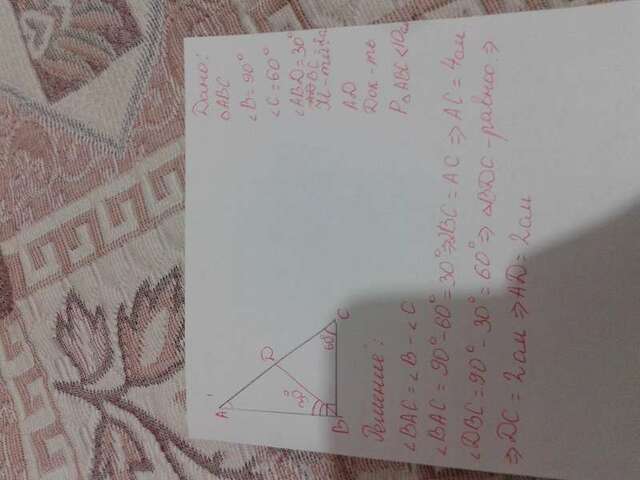 Дано:
△ABC
∠B=90°
∠C=60°
∠ABD=30°
AD
Док-ть
P△ABC<10см
A
D
30°
60°
B
C
Решение:
∠BAC=∠B-∠C
∠BAC=90°-60°=30°⇒2BC=AC⇒AC=4см
∠DBC=90°-30°=60°⇒△BDC-равно.⇒
⇒DC=2см⇒AD=2см